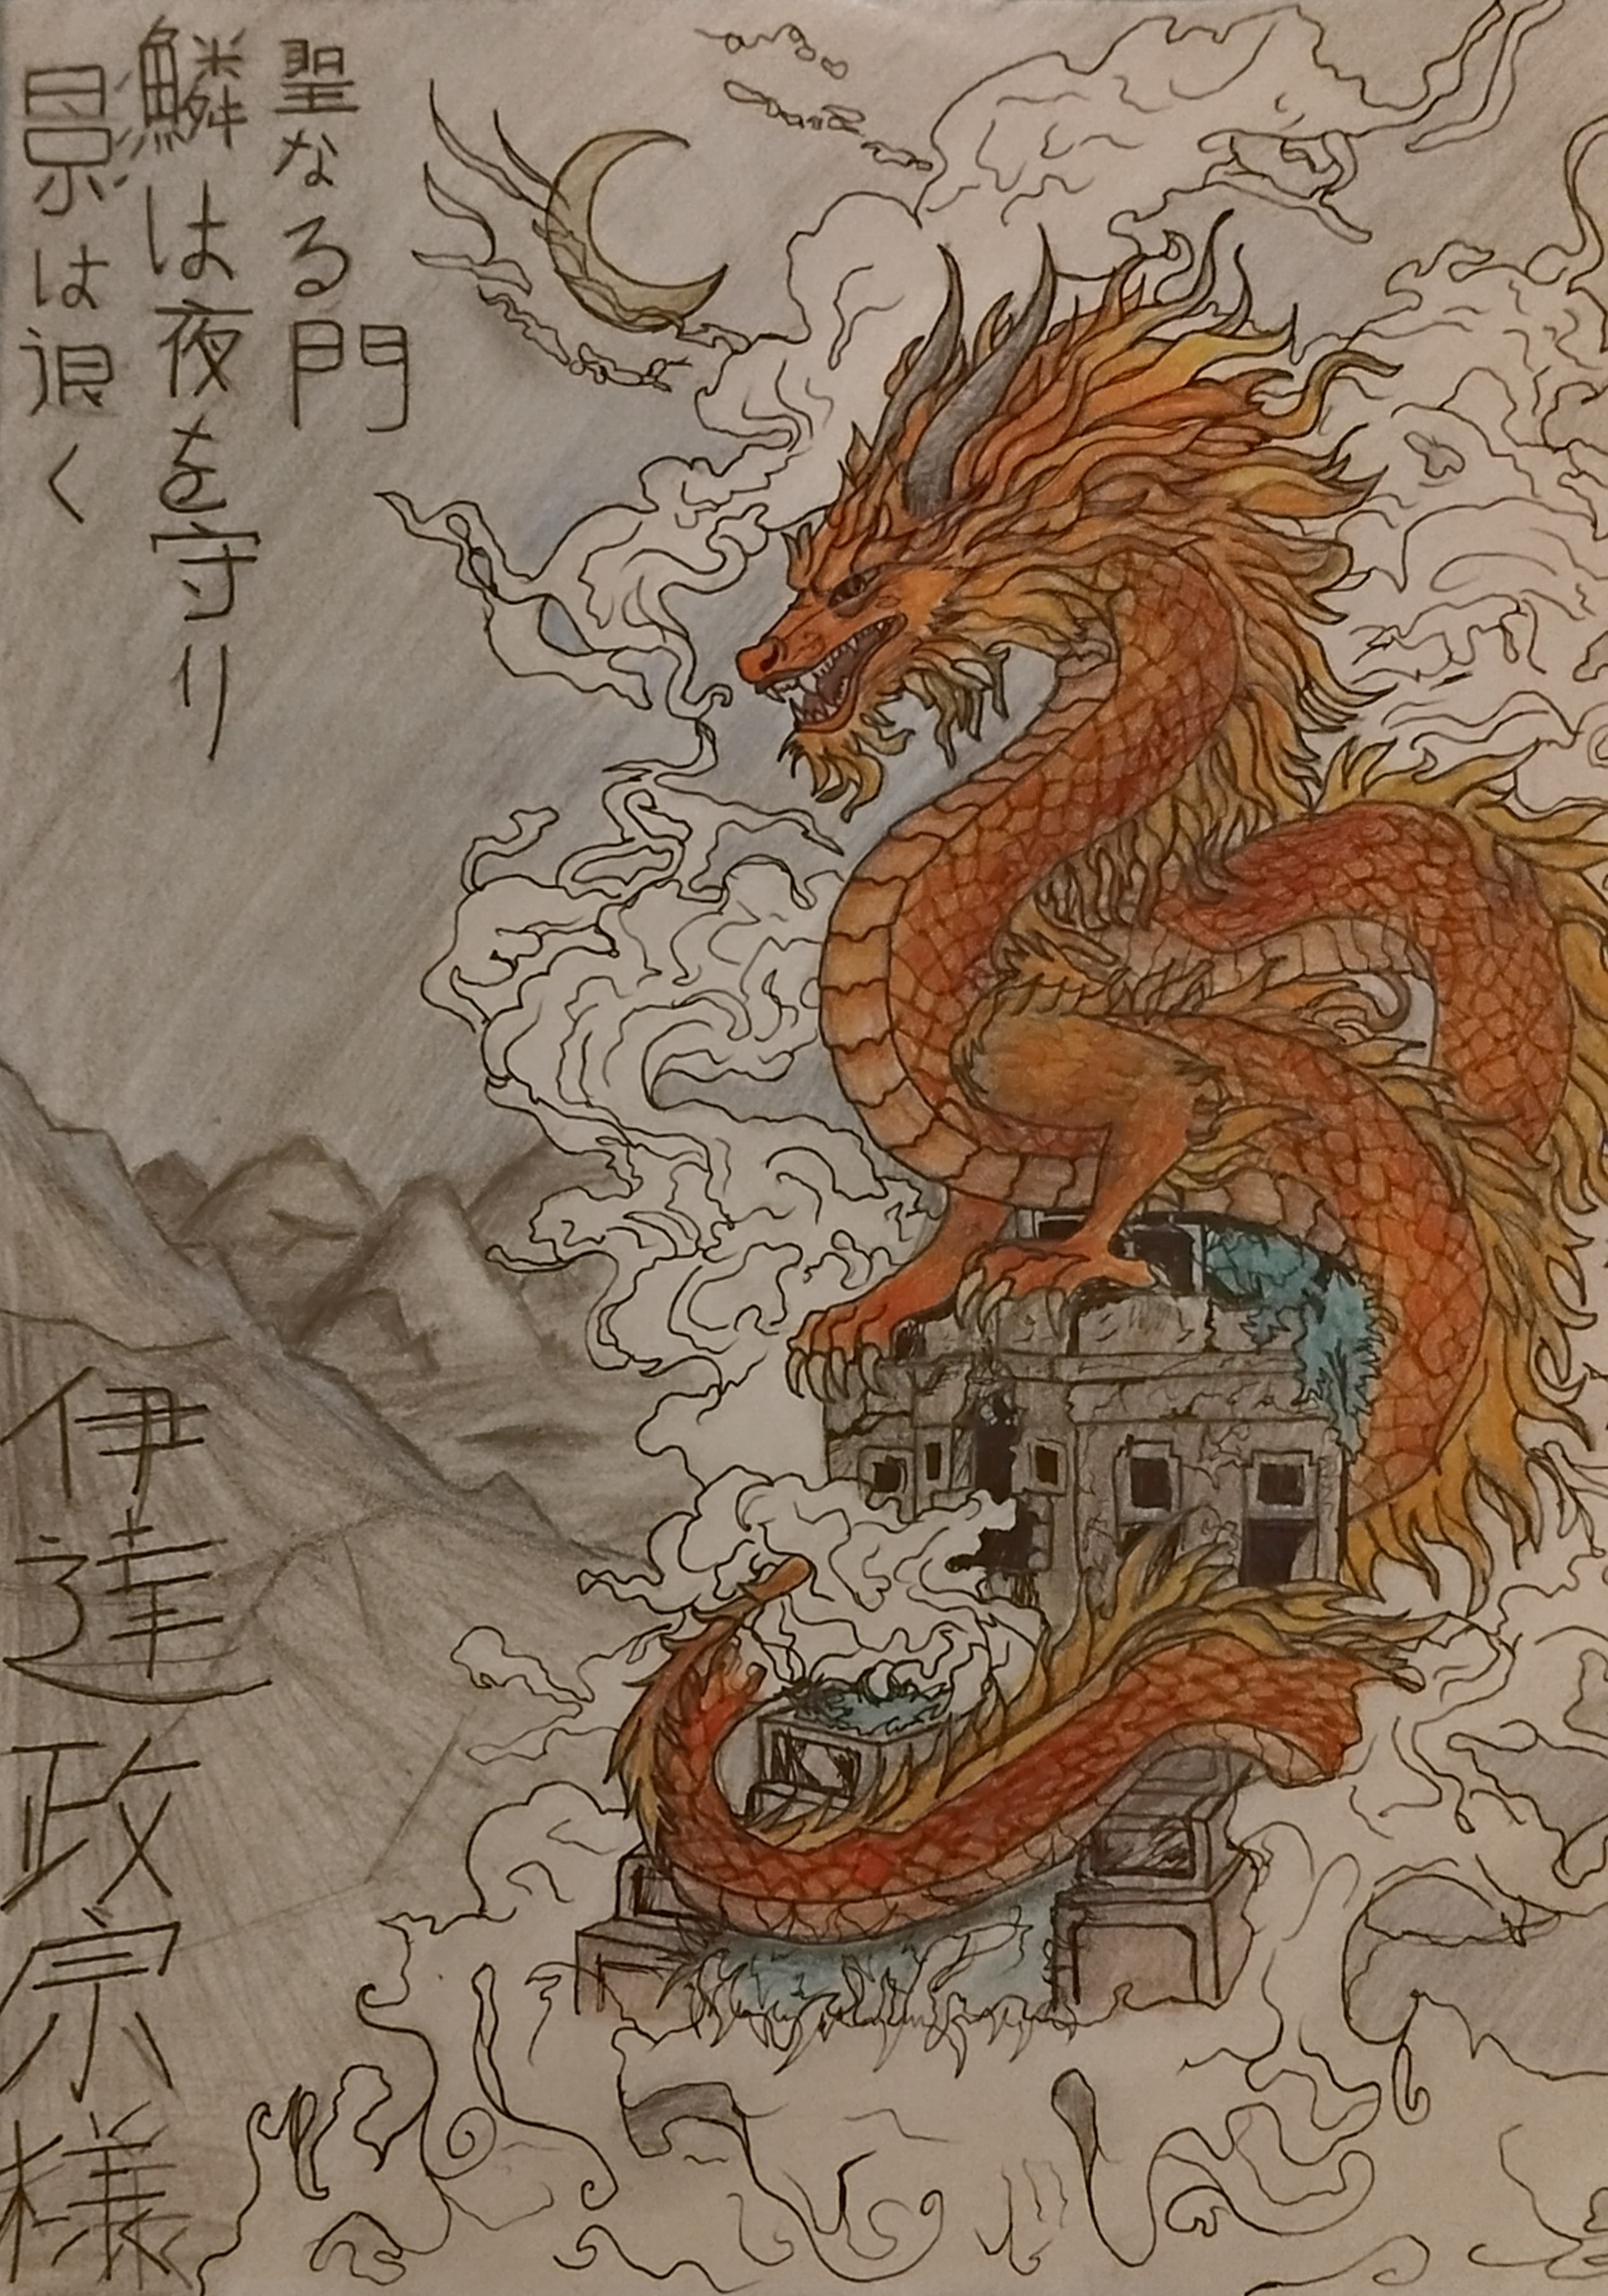 聖なる門
鱗は夜を守り
影は退く
伊達政宗様